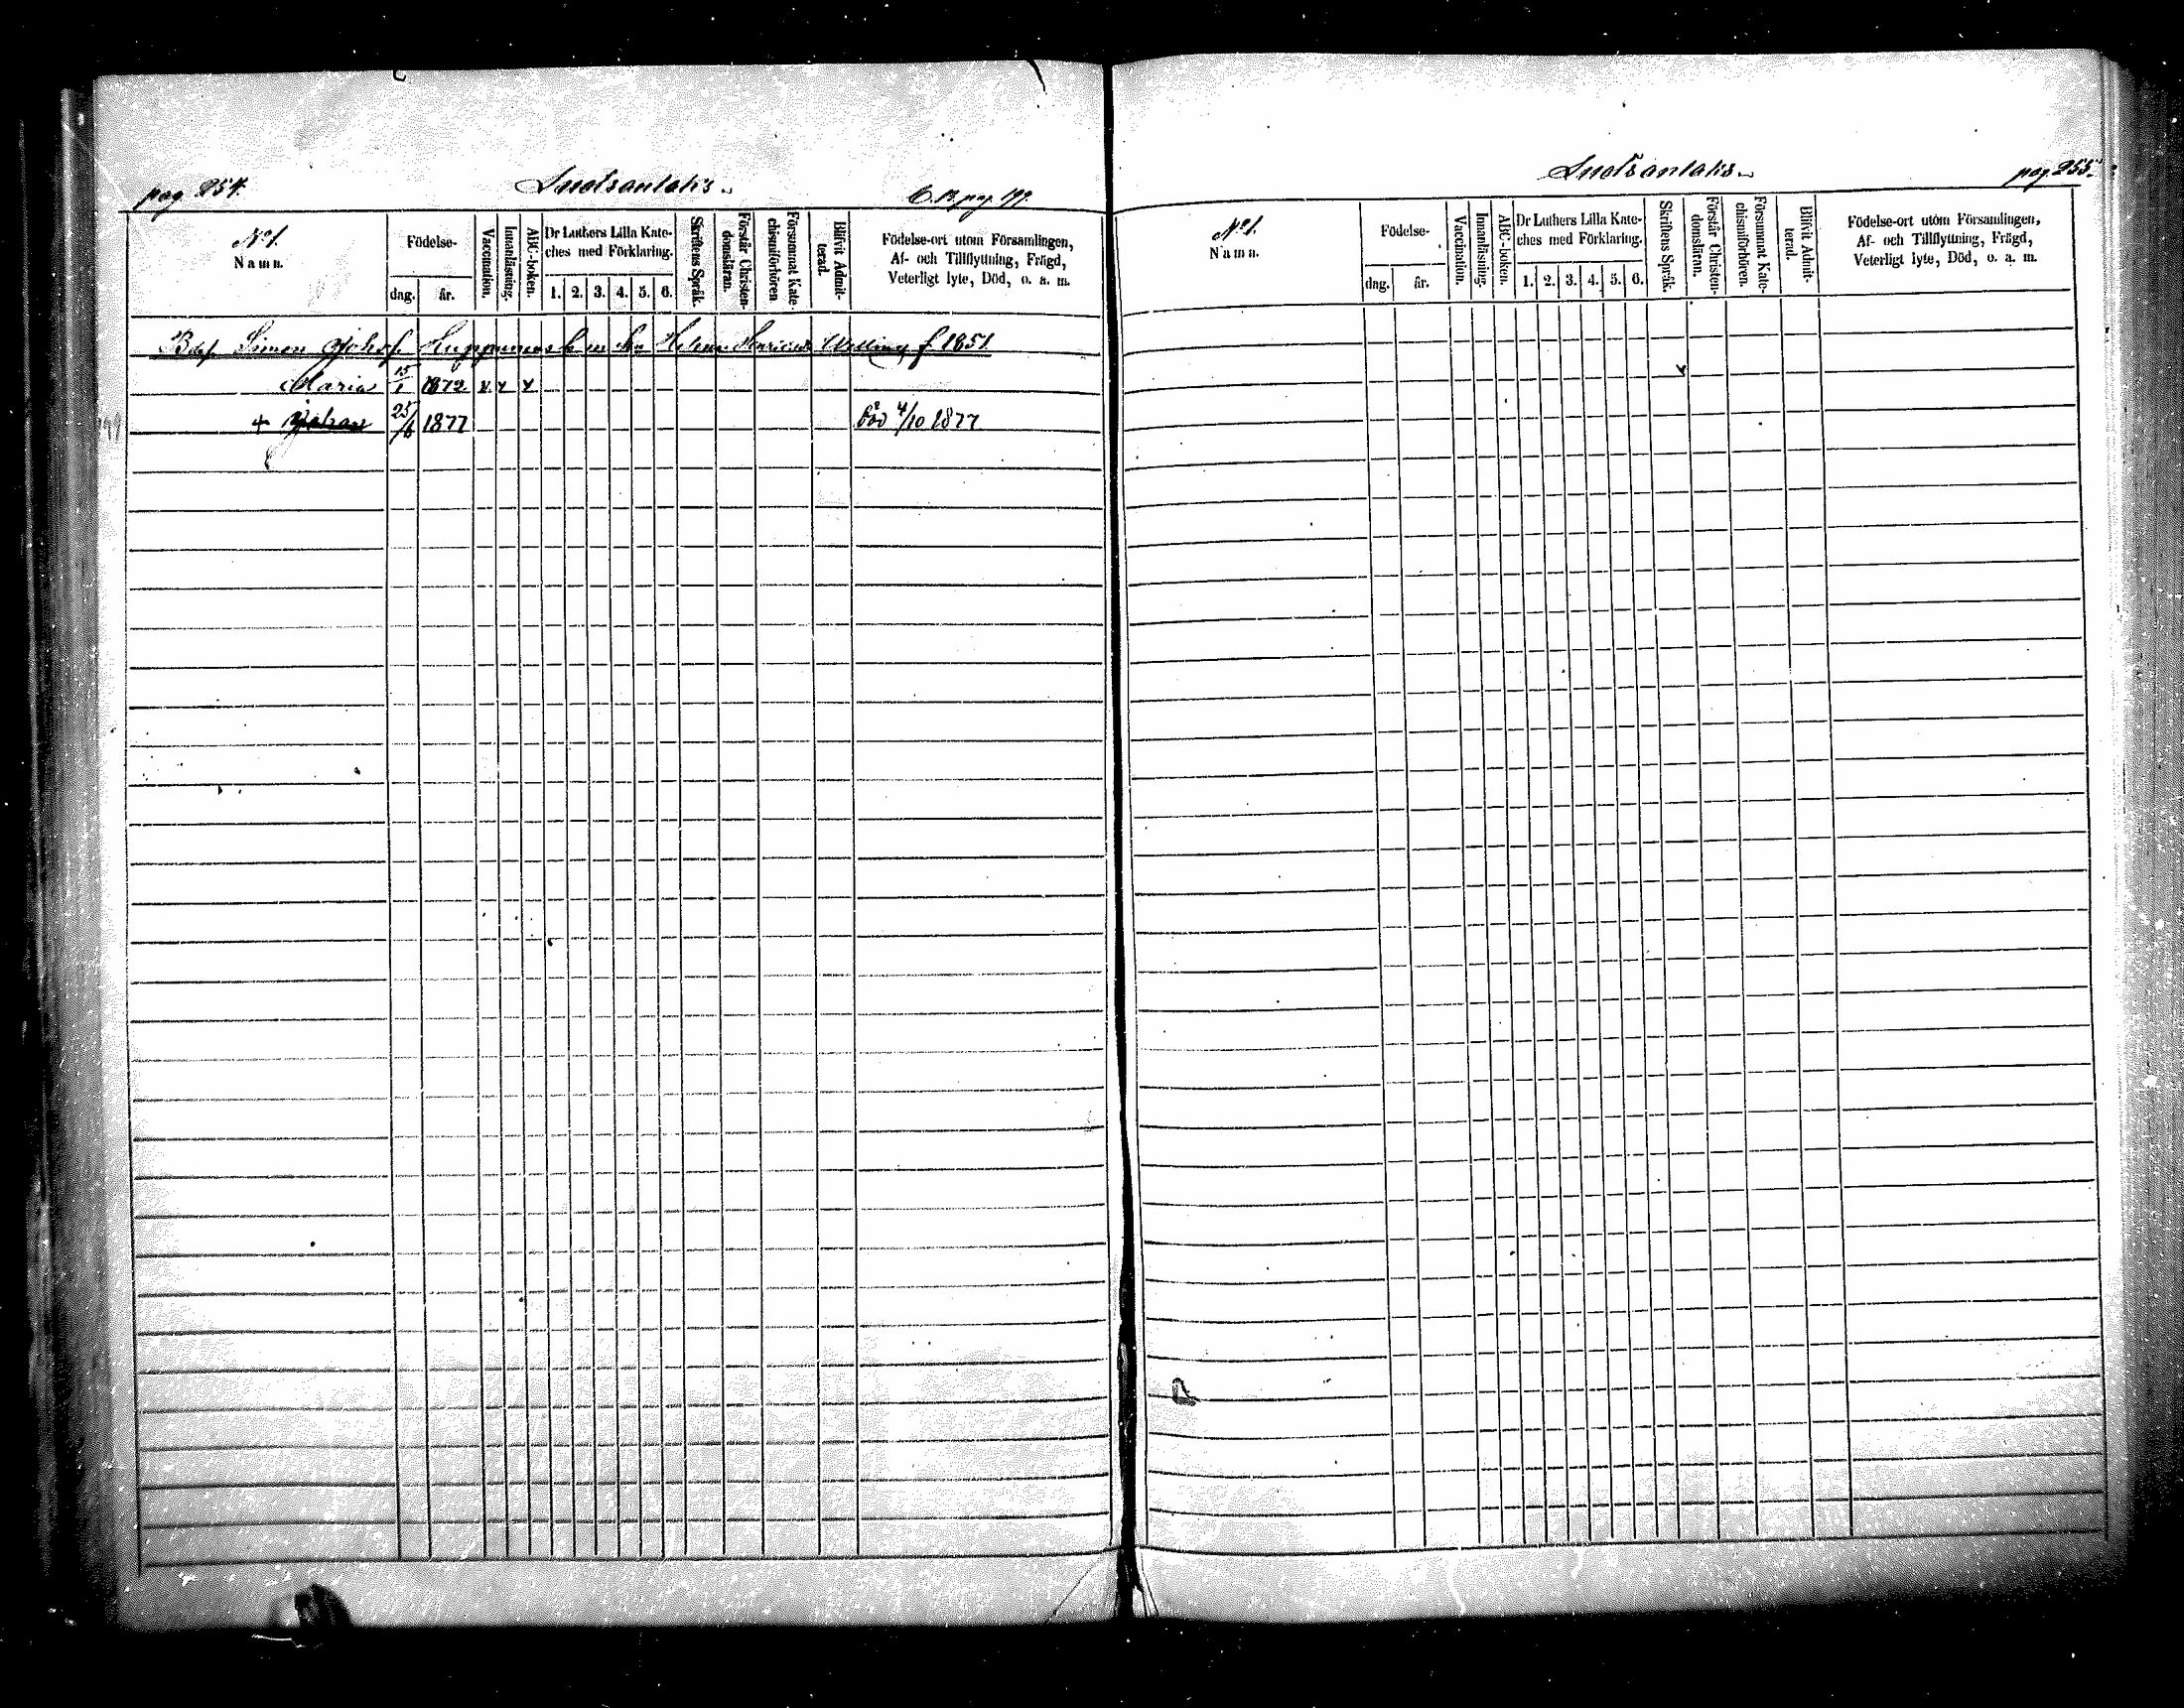 pag. 254.
Suotsanlaks.
C. B. pag. 199.
No 1.
Namn.
Födelse-
dag. år.
Vaccination.
Innanläsning.
ABC-boken.
Dr Luthers Lilla Kate-
ches med Förklaring.
1. 2. 3. 4. 5. 6.
Skriftens Språk.
Förstår Christen-
domsläran.
Försummat Kate-
chismiförhören.
Blifvit Admit-
terad.
Födelse-ort utom Församlingen,
Af- och Tillflyttning, Frägd,
Veterligt lyte, Död, o. a. m.
Simon Johsf. Huppunen Helena f 1851
Maria 15/1 1872 x x x
+ Johan 25/6 1877 död 4/10 1877
Suotsanlaks.
pag. 255.
No 1.
Namn.
Födelse-
dag. år.
Vaccination.
Innanläsning.
ABC-boken.
Dr Luthers Lilla Kate-
ches med Förklaring.
1. 2. 3. 4. 5. 6.
Skriftens Språk.
Förstår Christen-
domsläran.
Försummat Kate-
chismiförhören.
Blifvit Admit-
terad.
Födelse-ort utom Församlingen,
Af- och Tillflyttning, Frägd,
Veterligt lyte, Död, o. a. m.